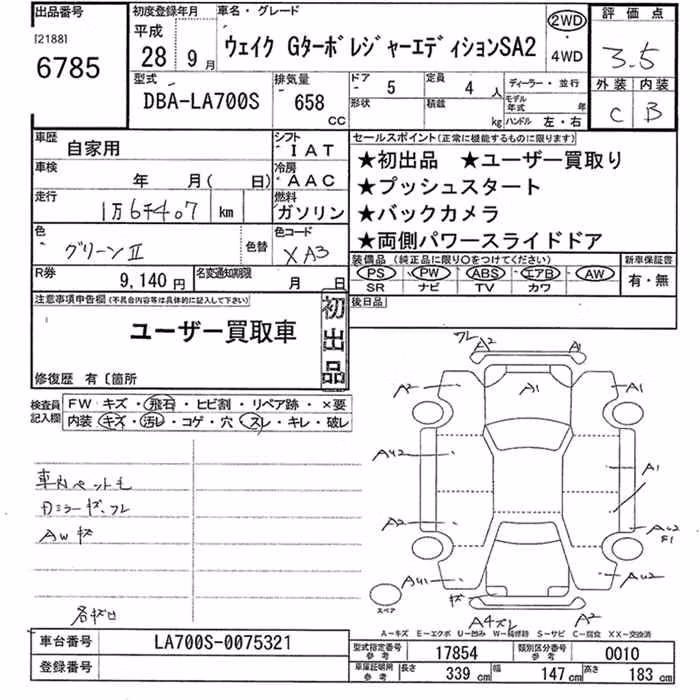 出品番号 初度登録年月 車名・グレード 2WD 評価点
[2188] 平成
6785 28年 9月 ウェイク GターボレジャーエディションSA2 ・ 4WD 3.5
型式 排気量 ドア 定員 ディーラー・並行 外装 内装
DBA-LA700S 658 CC 5 4人 C B
形状 積載 kg モデル年式 年 ハンドル 左・右
車歴 自家用 シフト IAT セールスポイント(正常に機能するものに限ります)
車検 年 月( 日) 冷房 AAC ★初出品 ★ユーザー買取り
★プッシュスタート
走行 1万6千407 km 燃料 ガソリン ★バックカメラ
色 グリーンⅡ 色替 色コード XA3 ★両側パワースライドドア
装備品(純正品に限り○をつけてください) 新車保証書
R券 9,140円 名変通知期限 月 日 PS PW ABS エアB AW 有・無
SR ナビ TV カワ
注意事項申告欄(不具合内容等は具体的に記入して下さい) 初出品 後日品
ユーザー買取車
修復歴 有〔箇所
検査員記入欄 FW キズ・飛石・ヒビ割・リペア跡・×要
内装 キズ・汚レ・コゲ・穴・スレ・キレ・破レ
車内ペット毛
Dミラーキズ、フレ
AWキズ
各キズ凹
フレ A2 A1
A2 A1 A1
AU2 A1
A2 AU2
F1
AU1 AU2
キズ
スペア A4ズレ A2
A-キズ E-エクボ U-凹み W-補修跡 S-サビ C-腐食 XX-交換済
車台番号 LA700S-0075321 型式指定番号 参考 17854 類別区分番号 参考 0010
登録番号 車庫証明用 参考 長さ 339cm 幅 147cm 高さ 183cm